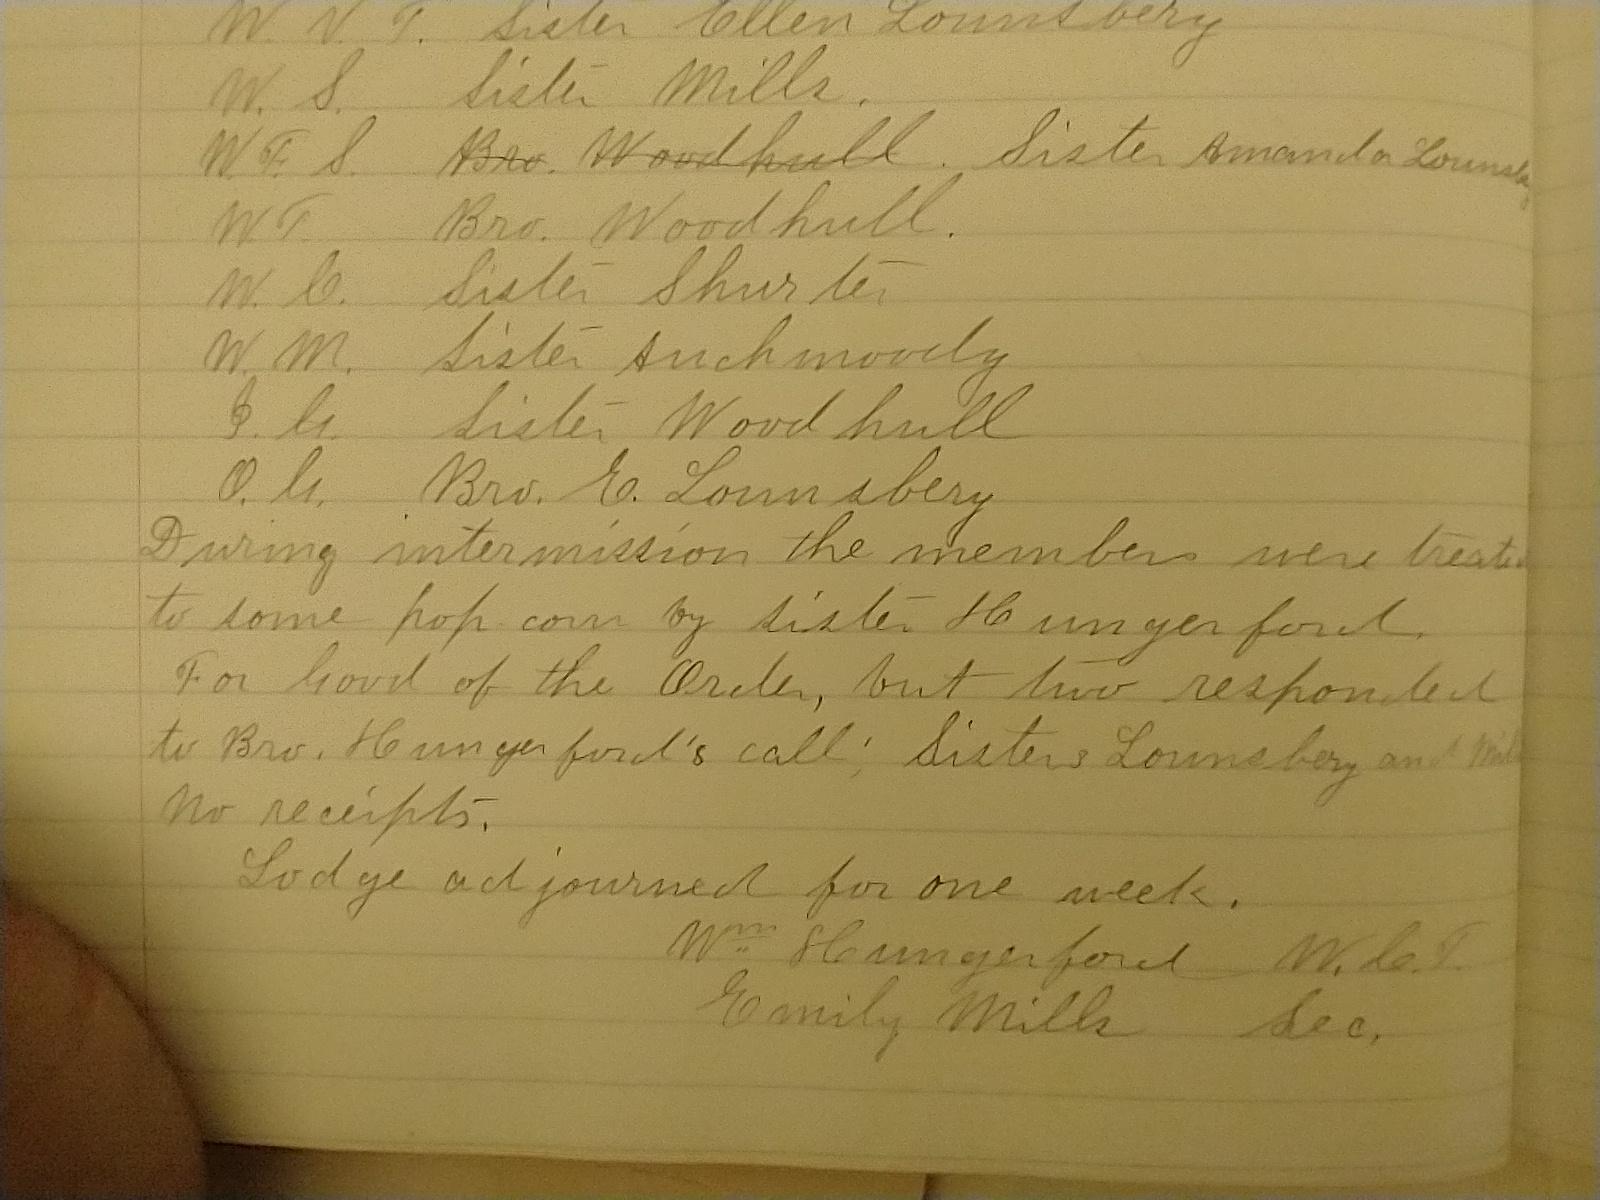 W. V. T. Sister Ellen Lounsbery
W. S. Sister Mills.
W. F. S. Bro. Woodhull. Sister Amanda Lounsbery
W T. Bro. Woodhull.
W. C. Sister Shurter
W. M. Sister Auchmoody
I. G. Sister Woodhull
O. G. Bro. E. Lounsbery
During intermission the members were treated
to some pop corn by sister Hungerford.
For Good of the Order, but two responded
to Bro. Hungerford's call; Sisters Lounsbery and Mills
No receipts.
Lodge adjourned for one week.
Wm Hungerford W. C. T.
Emily Mills Sec.